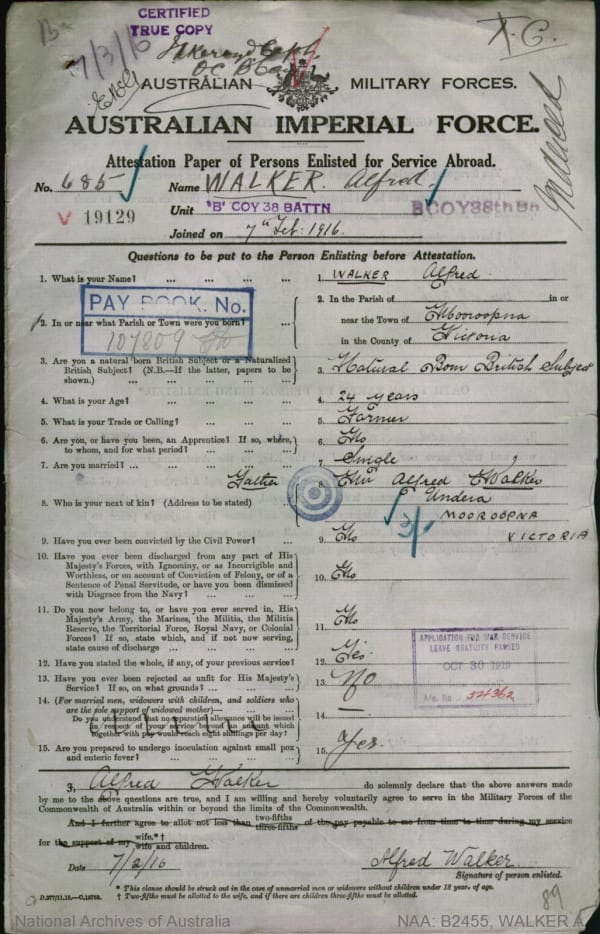 B
CERTIFIED
TRUE COPY
7/3/16
O C B Coy
T.C.
AUSTRALIAN MILITARY FORCES.
AUSTRALIAN IMPERIAL FORCE.
Attestation Paper of Persons Enlisted for Service Abroad.
No. 685 Name WALKER. Alfred.
V 19129 Unit "B" COY 38 BATTN B COY 38th Bn
Joined on 7th Feb. 1916.
Questions to be put to the Person Enlisting before Attestation.
1. What is your Name? ... ... ... 1. WALKER Alfred
2. In or near what Parish or Town were you born? ... 2. In the Parish of in or
near the Town of Mooroopna
in the County of Victoria
PAY BOOK. No.
107809
3. Are you a natural born British Subject or a Naturalized
British Subject? (N.B.—If the latter, papers to be
shown.) ... ... ... 3. Natural Born British Subject
4. What is your Age? ... ... ... 4. 24 years
5. What is your Trade or Calling? ... ... 5. Farmer
6. Are you, or have you been, an Apprentice? If so, where,
to whom, and for what period? ... ... 6. No
7. Are you married? ... ... ... 7. Single
8. Who is your next of kin? (Address to be stated) ... Father 8. Alfred Walker
Undera
MOOROOPNA
VICTORIA
9. Have you ever been convicted by the Civil Power? ... 9. No
10. Have you ever been discharged from any part of His
Majesty's Forces, with Ignominy, or as Incorrigible and
Worthless, or on account of Conviction of Felony, or of a
Sentence of Penal Servitude, or have you been dismissed
with Disgrace from the Navy? ... ... 10. No
11. Do you now belong to, or have you ever served in, His
Majesty's Army, the Marines, the Militia, the Militia
Reserve, the Territorial Force, Royal Navy, or Colonial
Forces? If so, state which, and if not now serving,
state cause of discharge ... ... 11. No
12. Have you stated the whole, if any, of your previous service? 12. Yes
APPLICATION FOR WAR SERVICE
LEAVE GRATUITY PASSED
OCT 30 1919
No. 54362
13. Have you ever been rejected as unfit for His Majesty's
Service? If so, on what grounds? ... ... 13. No
14. (For married men, widowers with children, and soldiers who
are the sole support of widowed mother)— ...
Do you understand that no separation allowance will be issued
in respect of your service beyond an amount which
together with pay would reach eight shillings per day? 14. —
15. Are you prepared to undergo inoculation against small pox
and enteric fever? ... ... ... 15. Yes
I, Alfred Walker do solemnly declare that the above answers made
by me to the above questions are true, and I am willing and hereby voluntarily agree to serve in the Military Forces of the
Commonwealth of Australia within or beyond the limits of the Commonwealth.
And I further agree to allot not less than two-fifths three-fifths of the pay payable to me from time to time during my service
for the support of my wife.*† wife and children.
Date 7/2/16 Alfred Walker
Signature of person enlisted.
* This clause should be struck out in the case of unmarried men or widowers without children under 18 years of age.
† Two-fifths must be allotted to the wife, and if there are children three-fifths must be allotted.
89
National Archives of Australia NAA: B2455, WALKER A